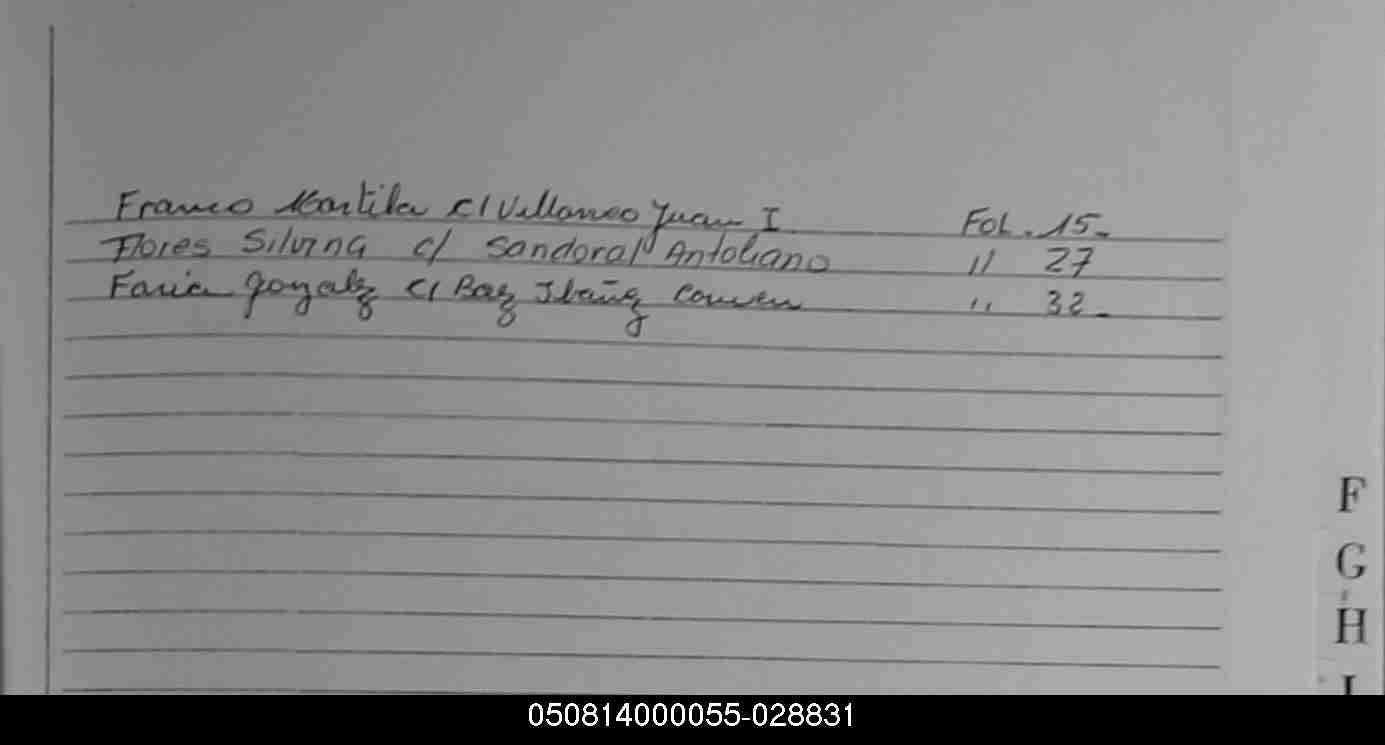 Franco Martila c/ Villanco Juan I. Fol. 15.
Flores Silvina c/ Sandoval Antoliano " 27
Faria c/ Baez Ibañez " 32.
F
G
H
I
050814000055-028831